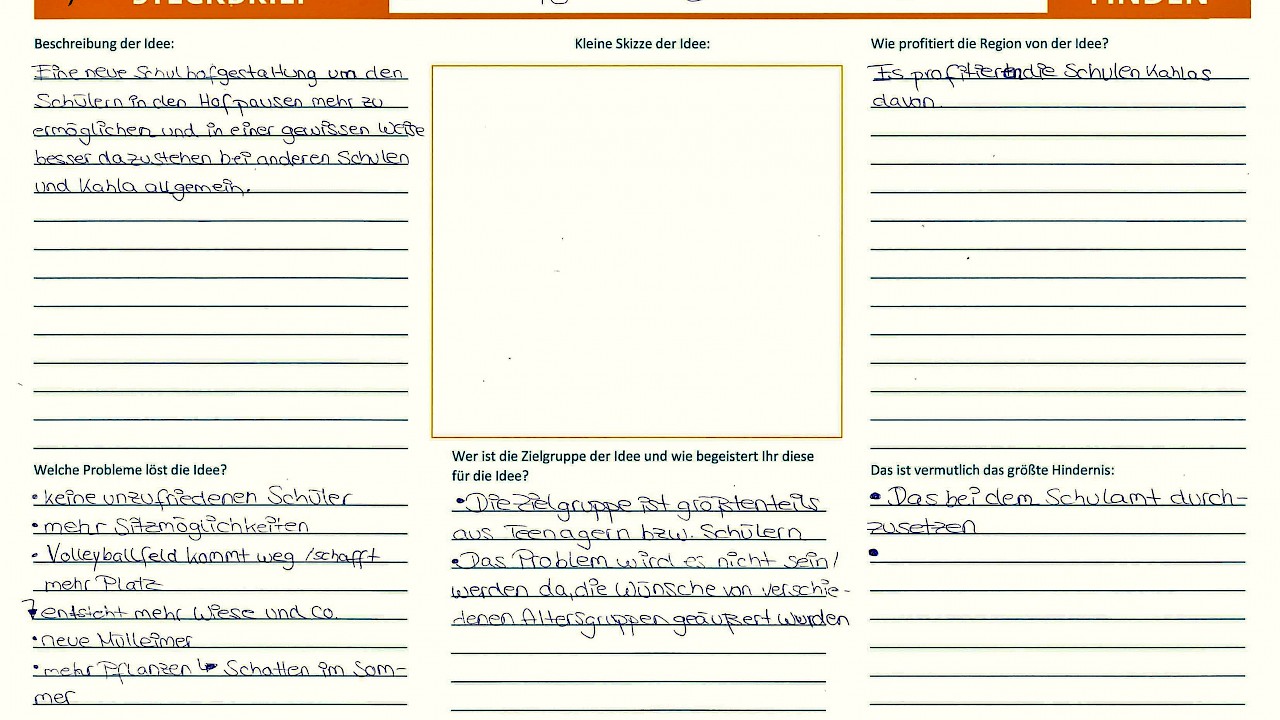 Beschreibung der Idee:
Eine neue Schulhofgestaltung um den
Schülern in den Hofpausen mehr zu
ermöglichen und in einer gewissen Weite
besser dazustehen bei anderen Schulen
und Kahla allgemein.
Kleine Skizze der Idee:
Wie profitiert die Region von der Idee?
Es profitieren die Schulen Kahlas
davon.
Welche Probleme löst die Idee?
• keine unzufriedenen Schüler
• mehr Sitzmöglichkeiten
• Volleyballfeld kommt weg /schafft
mehr Platz
↳ entsteht mehr Wiese und Co.
• neue Mülleimer
• mehr Pflanzen ↳ Schatten im Som-
mer
Wer ist die Zielgruppe der Idee und wie begeistert Ihr diese
für die Idee?
• Die Zielgruppe ist größtenteils
aus Teenagern bzw. Schülern
• Das Problem wird es nicht sein/
werden da, die Wünsche von verschie-
denen Altersgruppen geäußert wurden
Das ist vermutlich das größte Hindernis:
• Das bei dem Schulamt durch-
zusetzen
•